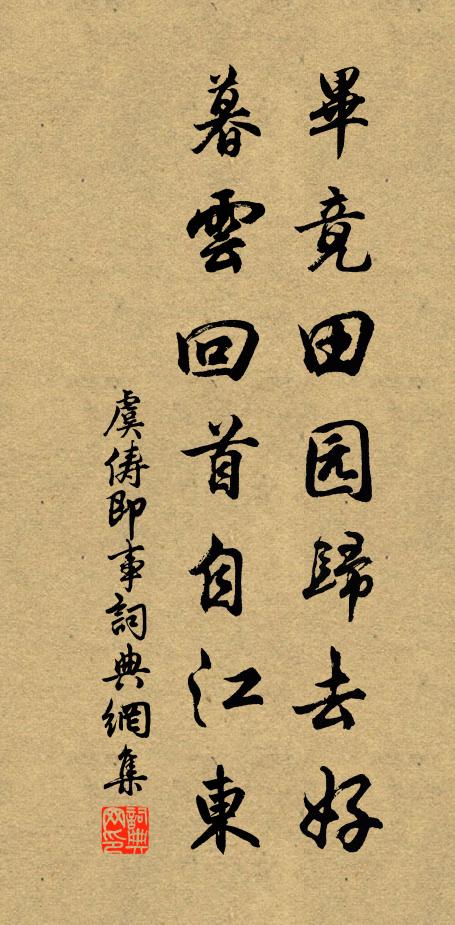 畢竟田园歸去好
暮雲回首自江東
虞儔即事詞典網集
詞典网印